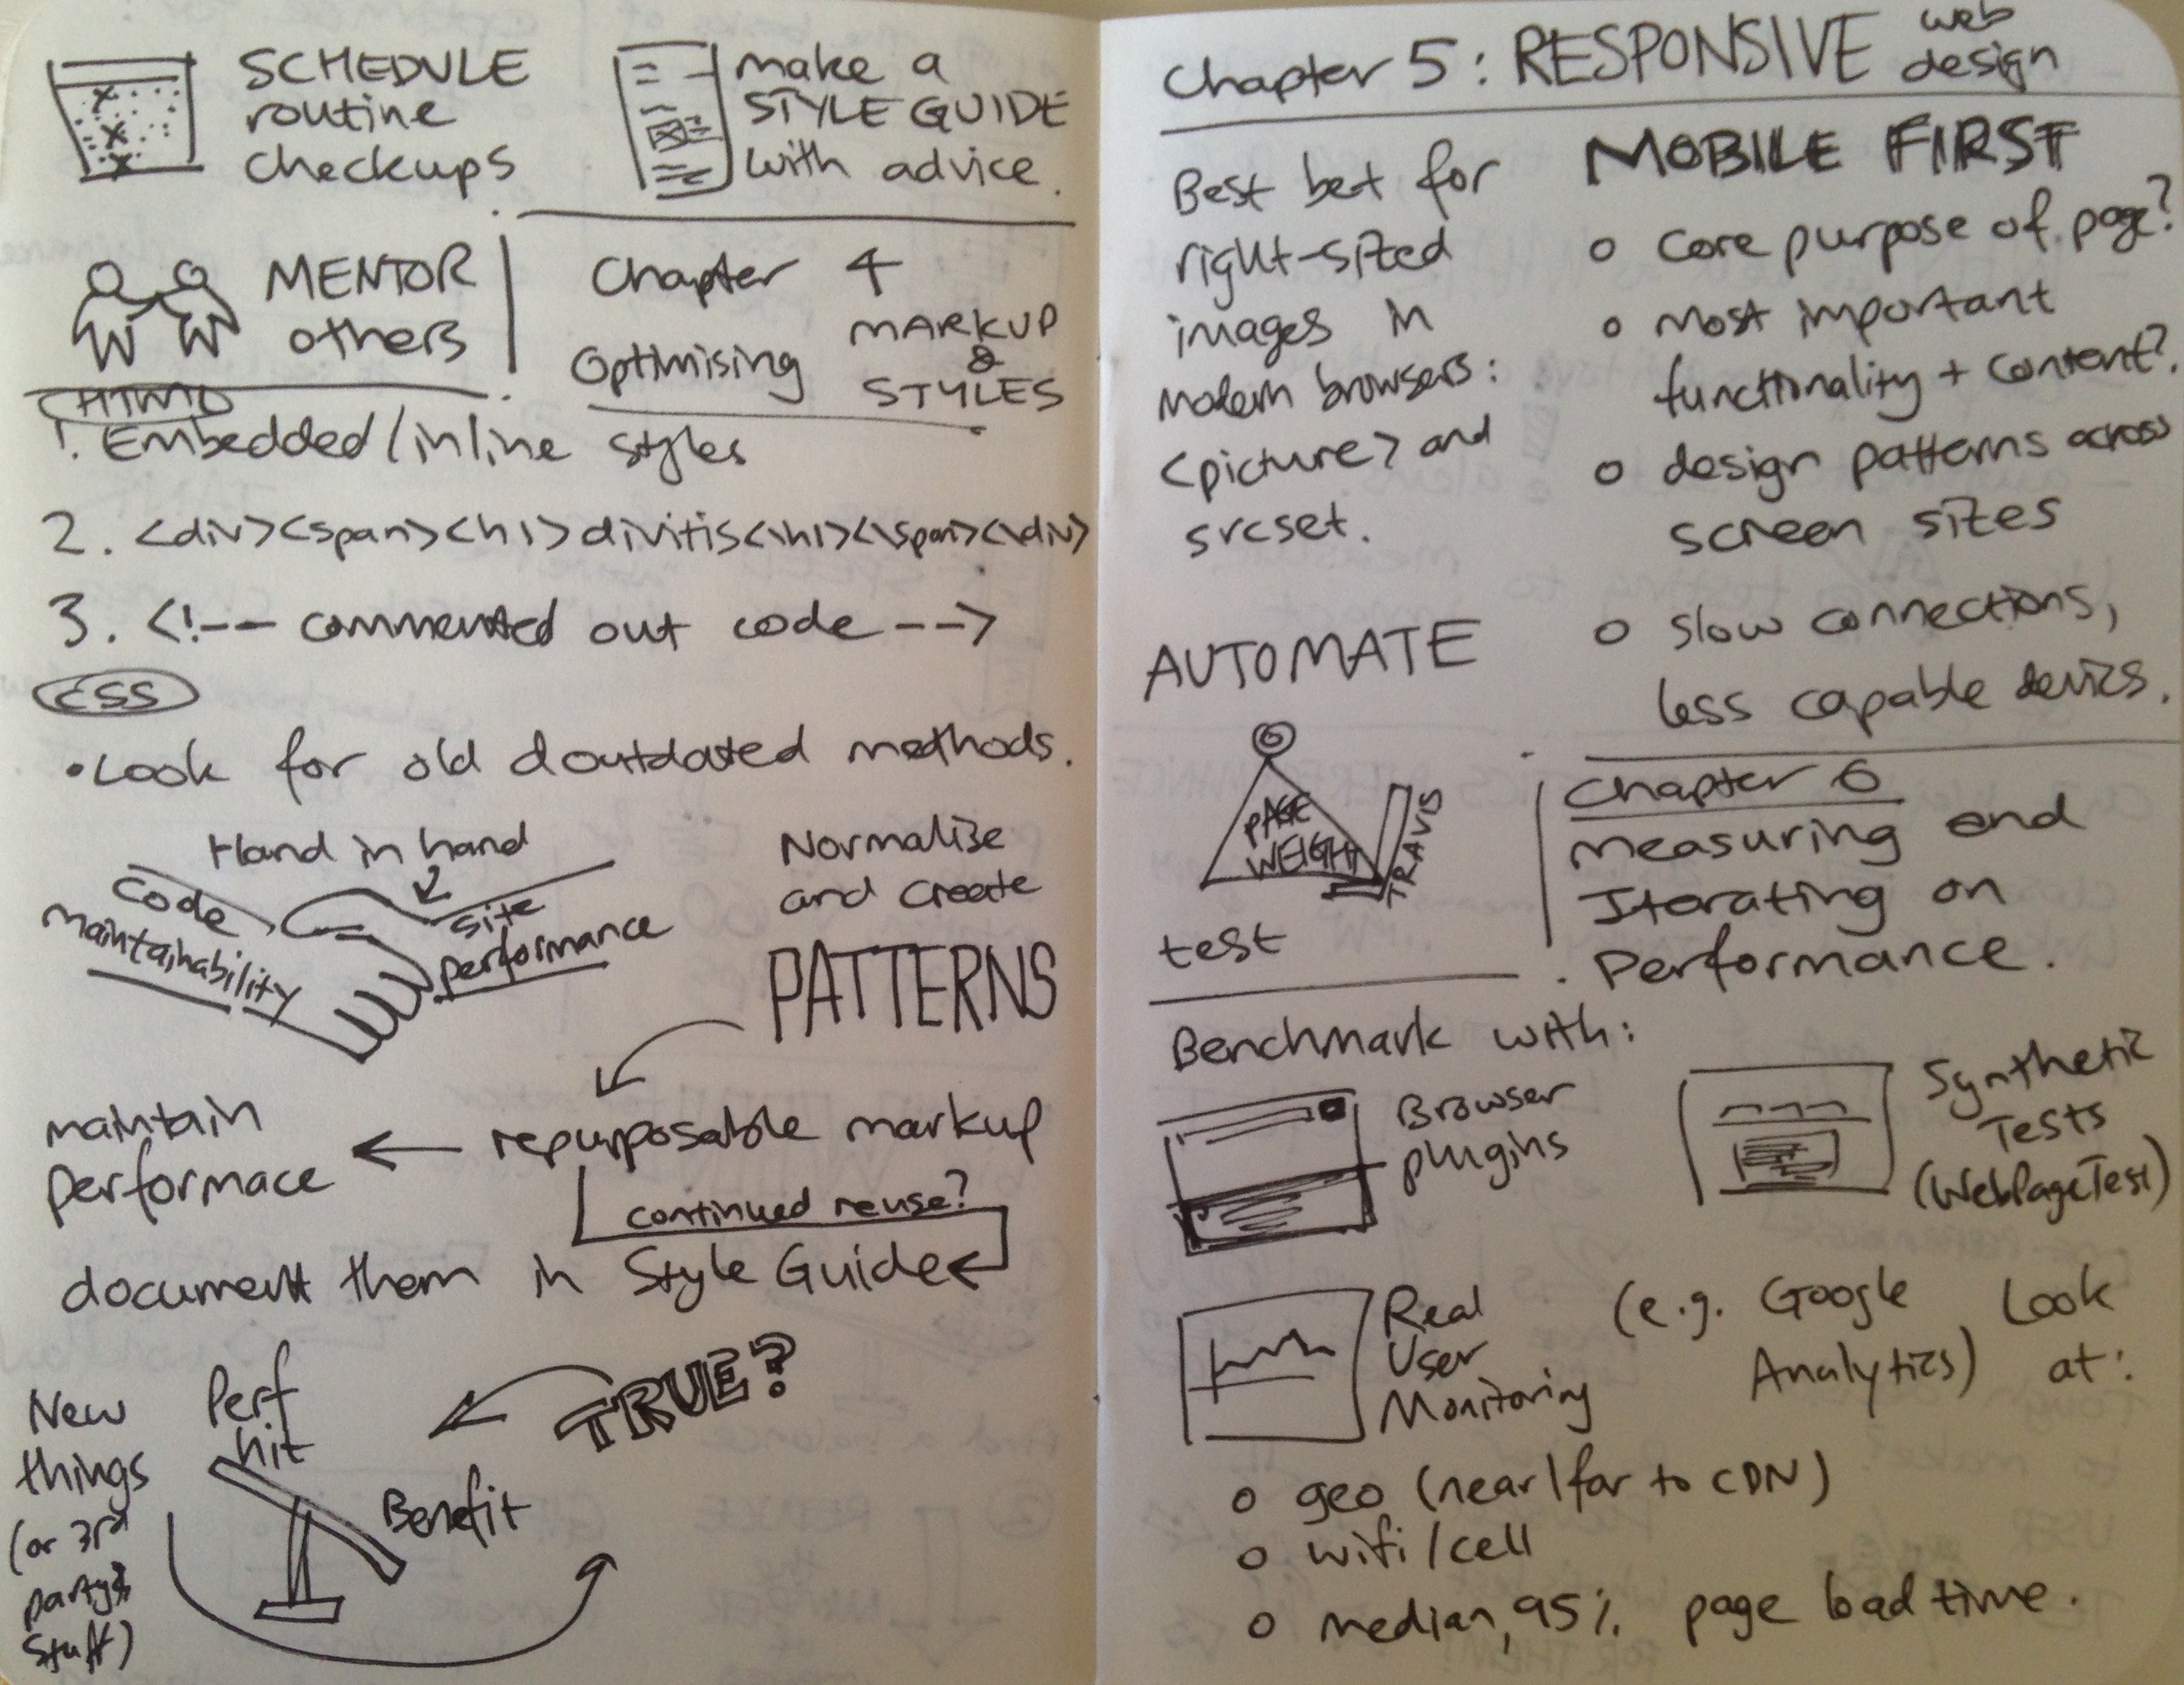 SCHEDULE
routine
checkups
make a
STYLE GUIDE
with advice.
MENTOR
others
Chapter 4
Optimising
MARKUP
&
STYLES
HTML
1. Embedded/inline styles
2. <div><span><h1>divitis<\h1><\span><\div>
3. <!-- commented out code -->
CSS
• Look for old & outdated methods.
Hand in hand
code
maintainability
site
performance
Normalise
and create
PATTERNS
repurposable markup
maintain
performace
continued reuse?
document them in Style Guide
TRUE?
New
things
(or 3rd
party
stuff)
Perf
hit
Benefit
Chapter 5: RESPONSIVE web
design
Best bet for
right-sized
images in
modern browsers:
<picture> and
srcset.
MOBILE FIRST
o core purpose of page?
o most important
functionality + content?
o design patterns across
screen sizes
o slow connections,
less capable devices.
AUTOMATE
PAGE
WEIGHT
TRAVIS
test
Chapter 6
Measuring and
Iterating on
Performance.
Benchmark with:
Browser
plugins
Synthetic
Tests
(WebPageTest)
Real
User
Monitoring
(e.g. Google
Analytics)
Look
at:
o geo (near/far to CDN)
o wifi/cell
o median, 95% page load time.